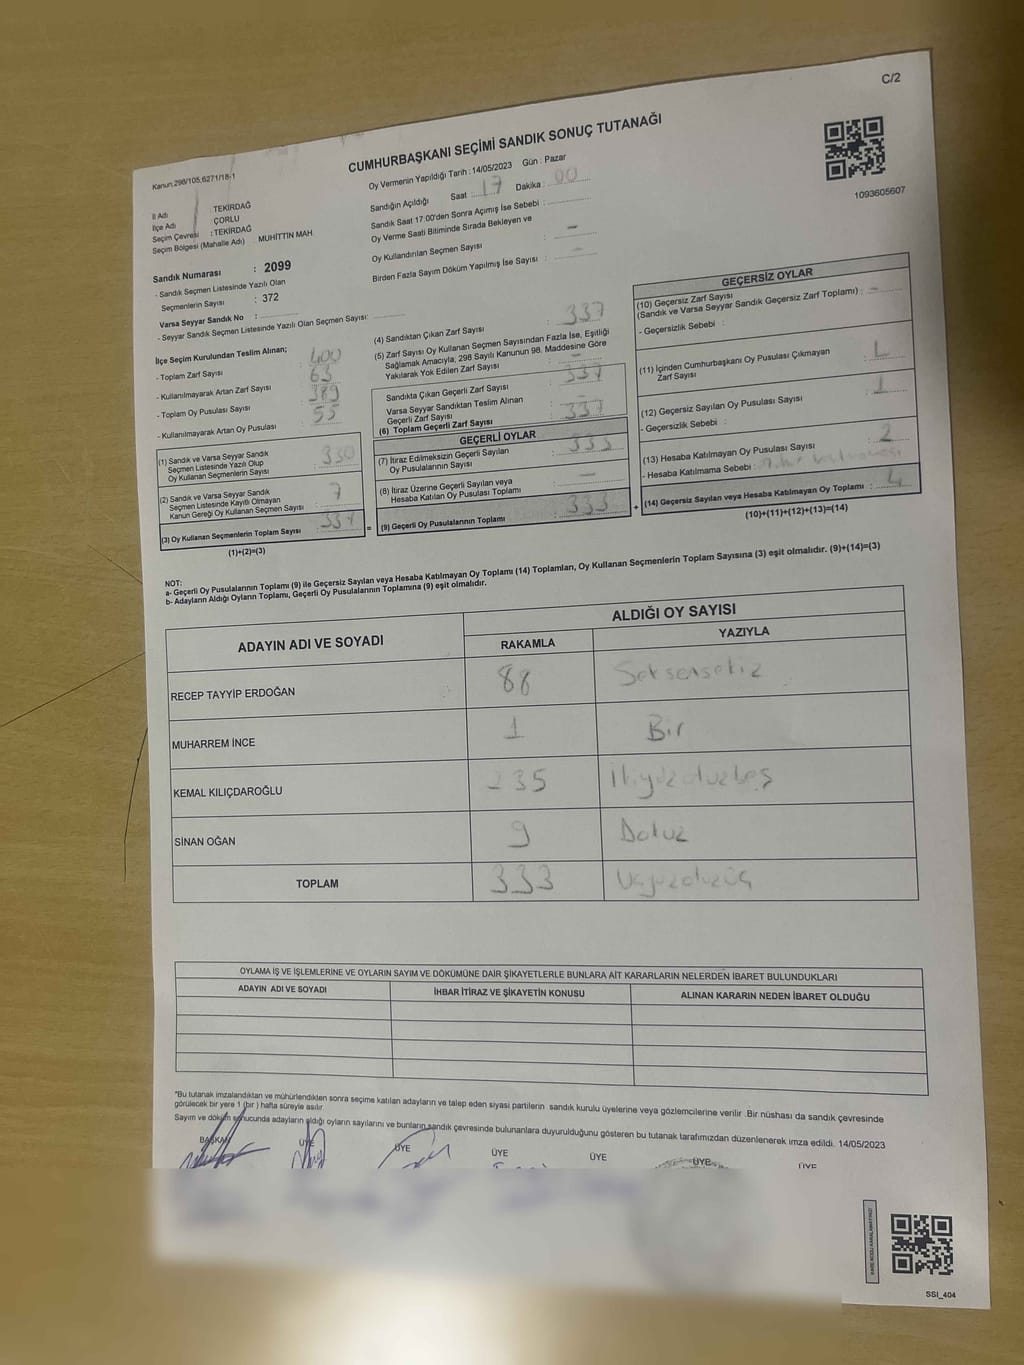 C/2
CUMHURBAŞKANI SEÇİMİ SANDIK SONUÇ TUTANAĞI
Kanun:298/105,6271/18-1
Oy Vermenin Yapıldığı Tarih : 14/05/2023 Gün : Pazar
Sandığın Açıldığı Saat : 17 Dakika : 00
Sandık Saat 17:00'den Sonra Açımış İse Sebebi :
Oy Verme Saati Bitiminde Sırada Bekleyen ve
Oy Kullandırılan Seçmen Sayısı : -
Birden Fazla Sayım Döküm Yapılmış İse Sayısı : -
1093605607
İl Adı : TEKİRDAĞ
İlçe Adı : ÇORLU
Seçim Çevresi : TEKİRDAĞ
Seçim Bölgesi (Mahalle Adı) : MUHİTTİN MAH.
Sandık Numarası : 2099
- Sandık Seçmen Listesinde Yazılı Olan
Seçmenlerin Sayısı : 372
Varsa Seyyar Sandık No :
- Seyyar Sandık Seçmen Listesinde Yazılı Olan Seçmen Sayısı:
İlçe Seçim Kurulundan Teslim Alınan;
- Toplam Zarf Sayısı : 400
- Kullanılmayarak Artan Zarf Sayısı : 63
- Toplam Oy Pusulası Sayısı : 389
- Kullanılmayarak Artan Oy Pusulası : 55
(1) Sandık ve Varsa Seyyar Sandık
Seçmen Listesinde Yazılı Olup
Oy Kullanan Seçmenlerin Sayısı : 330
(2) Sandık ve Varsa Seyyar Sandık
Seçmen Listesinde Kayıtlı Olmayan
Kanun Gereği Oy Kullanan Seçmen Sayısı : 7
(3) Oy Kullanan Seçmenlerin Toplam Sayısı : 337
(1)+(2)=(3)
(4) Sandıktan Çıkan Zarf Sayısı : 337
(5) Zarf Sayısı Oy Kullanan Seçmen Sayısından Fazla İse, Eşitliği
Sağlamak Amacıyla, 298 Sayılı Kanunun 98. Maddesine Göre
Yakılarak Yok Edilen Zarf Sayısı : -
Sandıkta Çıkan Geçerli Zarf Sayısı : 337
Varsa Seyyar Sandıktan Teslim Alınan
Geçerli Zarf Sayısı : -
(6) Toplam Geçerli Zarf Sayısı : 337
GEÇERLİ OYLAR
(7) İtiraz Edilmeksizin Geçerli Sayılan
Oy Pusulalarının Sayısı : 333
(8) İtiraz Üzerine Geçerli Sayılan veya
Hesaba Katılan Oy Pusulası Toplamı : -
= (9) Geçerli Oy Pusulalarının Toplamı : 333
GEÇERSİZ OYLAR
(10) Geçersiz Zarf Sayısı
(Sandık ve Varsa Seyyar Sandık Geçersiz Zarf Toplamı) : -
- Geçersizlik Sebebi :
(11) İçinden Cumhurbaşkanı Oy Pusulası Çıkmayan
Zarf Sayısı : 1
(12) Geçersiz Sayılan Oy Pusulası Sayısı : 1
- Geçersizlik Sebebi :
(13) Hesaba Katılmayan Oy Pusulası Sayısı : 2
- Hesaba Katılmama Sebebi :
+ (14) Geçersiz Sayılan veya Hesaba Katılmayan Oy Toplamı : 4
(10)+(11)+(12)+(13)=(14)
NOT:
a- Geçerli Oy Pusulalarının Toplamı (9) ile Geçersiz Sayılan veya Hesaba Katılmayan Oy Toplamı (14) Toplamları, Oy Kullanan Seçmenlerin Toplam Sayısına (3) eşit olmalıdır. (9)+(14)=(3)
b- Adayların Aldığı Oyların Toplamı, Geçerli Oy Pusulalarının Toplamına (9) eşit olmalıdır.
ADAYIN ADI VE SOYADI ALDIĞI OY SAYISI
RAKAMLA YAZIYLA
RECEP TAYYİP ERDOĞAN 88 Seksensekiz
MUHARREM İNCE 1 Bir
KEMAL KILIÇDAROĞLU 235 İkiyüzotuzbeş
SİNAN OĞAN 9 Dokuz
TOPLAM 333 Üçyüzotuzüç
OYLAMA İŞ VE İŞLEMLERİNE VE OYLARIN SAYIM VE DÖKÜMÜNE DAİR ŞİKAYETLERLE BUNLARA AİT KARARLARIN NELERDEN İBARET BULUNDUKLARI
ADAYIN ADI VE SOYADI İHBAR İTİRAZ VE ŞİKAYETİN KONUSU ALINAN KARARIN NEDEN İBARET OLDUĞU
*Bu tutanak imzalandıktan ve mühürlendikten sonra seçime katılan adayların ve talep eden siyasi partilerin sandık kurulu üyelerine veya gözlemcilerine verilir .Bir nüshası da sandık çevresinde
görülecek bir yere 1 (bir ) hafta süreyle asılır
Sayım ve döküm sonucunda adayların aldığı oyların sayılarını ve bunların sandık çevresinde bulunanlara duyurulduğunu gösteren bu tutanak tarafımızdan düzenlenerek imza edildi. 14/05/2023
BAŞKAN ÜYE ÜYE ÜYE ÜYE ÜYE ÜYE
KARE KODU KARALAMAYINIZ!
SSI_404